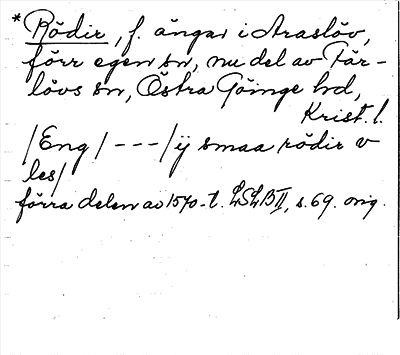 *Rödir, f. ängar i Araslöv,
förr egen sn, nu del av Fär-
lövs sn, Östra Göinge hd,
Krist. l.
/Eng/ - - - /ij smaa rödir v
les/
förra delen av 1570-t. LSLB II, s. 69. orig.